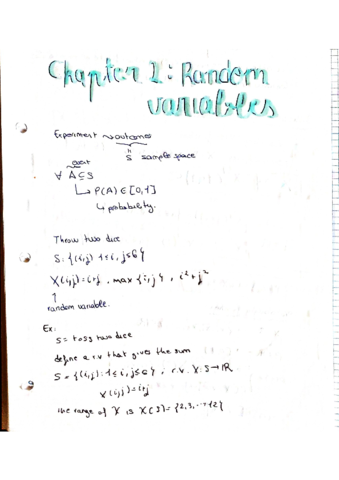 Chapter 1: Random
variables
Experiment ⇝ outcomes
∩
S sample space
event
∀ A ⊆ S
↳ P(A) ∈ [0,1]
↳ probability.
Throw two dice
S: {(i,j) 1≤i, j≤6}
X(i,j)=i+j, max {i,j}, i²+j²
↑
random variable.
Ex:
S = toss two dice
define a r.v that gives the sum
S = {(i,j): 1≤i, j≤6}; r.v. X: S→ℝ
X(i,j)=i+j
the range of X is X(S)={2,3,...,12}